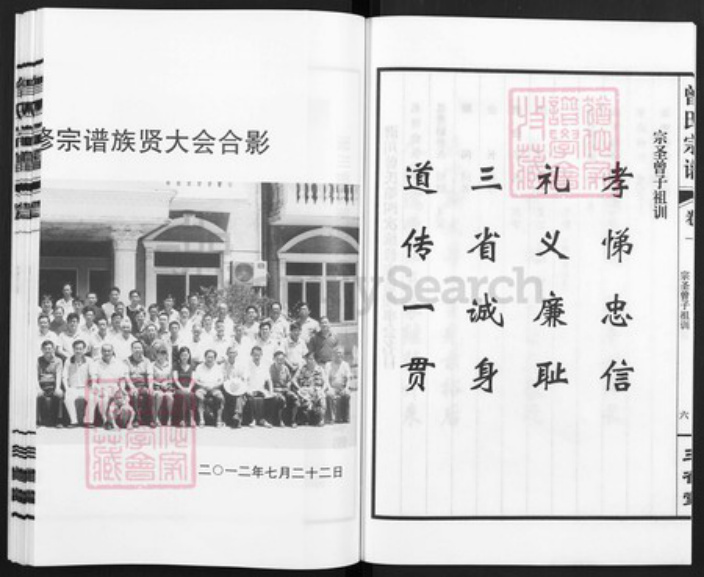 修宗谱族贤大会合影
二〇一二年七月二十二日
曾氏宗谱
卷一
宗圣曾子祖训
六
三省堂
宗圣曾子祖训
孝悌忠信
礼义廉耻
三省诚身
道传一贯
MySearch